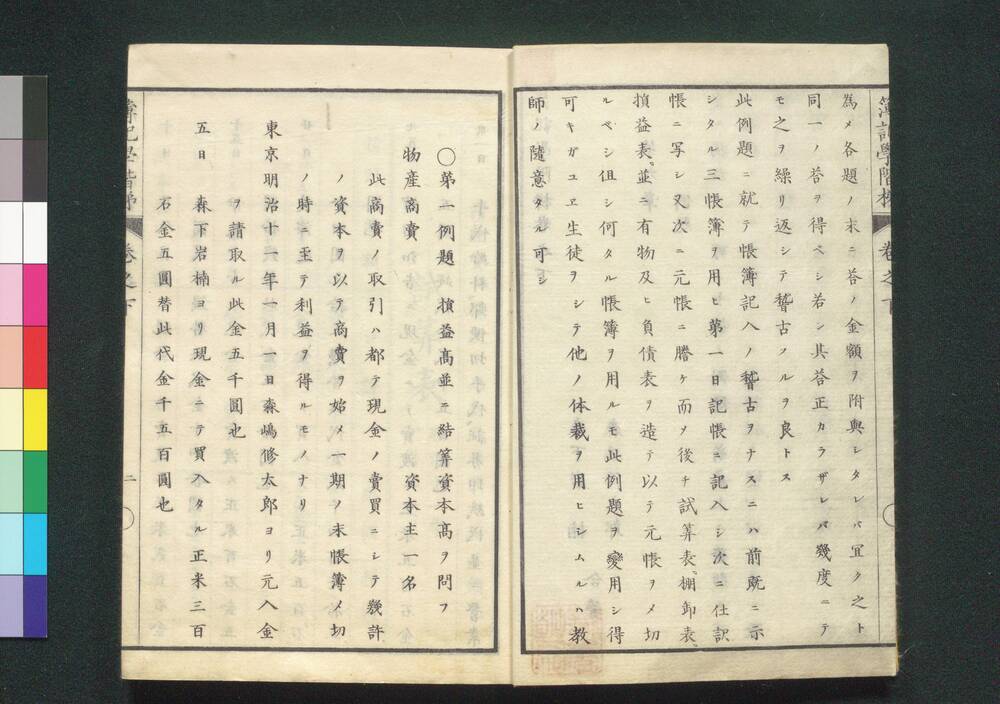 為メ各題ノ末ニ答ノ金額ヲ附與シタレバ冝ク之ト
同一ノ答ヲ得ベシ若シ其答正カラザレバ幾度ニテ
モ之ヲ繰リ返シテ稽古スルヲ良トス
此例題ニ就テ帳簿記入ノ稽古ヲナスニハ前既ニ示
シタル三帳簿ヲ用ヒ第一日記帳ニ記入シ次ニ仕訳
帳ニ写シ又次ニ元帳ニ謄ケ而メ後チ試算表、棚卸表、
損益表、並ニ有物及ヒ負債表ヲ造テ以テ元帳ヲメ切
ルベシ但シ何タル帳簿ヲ用ルモ此例題ヲ變用シ得
可キガユヱ生徒ヲシテ他ノ体裁ヲ用ヒシムルハ教
師ノ隨意タル可シ
〇第一例題 損益高並ニ結算資本高ヲ問フ
物産商賣 資本主一名
此商賣ノ取引ハ都テ現金ノ賣買ニシテ幾許
ノ資本ヲ以テ商賣ヲ始メ一期ノ末帳簿メ切
ノ時ニ至テ利益ヲ得ルモノナリ
東京明治十一年一月一日森嶋修太郎ヨリ元入金
ヲ請取ル此金五千圓也
五日 森下岩楠ヨリ現金ニテ買入タル正米三百
石金五圓替此代金千五百圓也
簿記學階梯 卷之下
簿記學階梯 卷之下 二